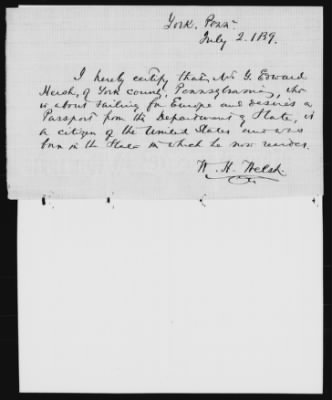 York, Penn.
July 2. 1889.
I hereby certify that Mr G. Edward
Hersh, of York County, Pennsylvania, who
is about sailing for Europe and desires a
Passport from the Department of State, is
a citizen of the United States and was
born in the State in which he now resides.
W. H. Welsh.